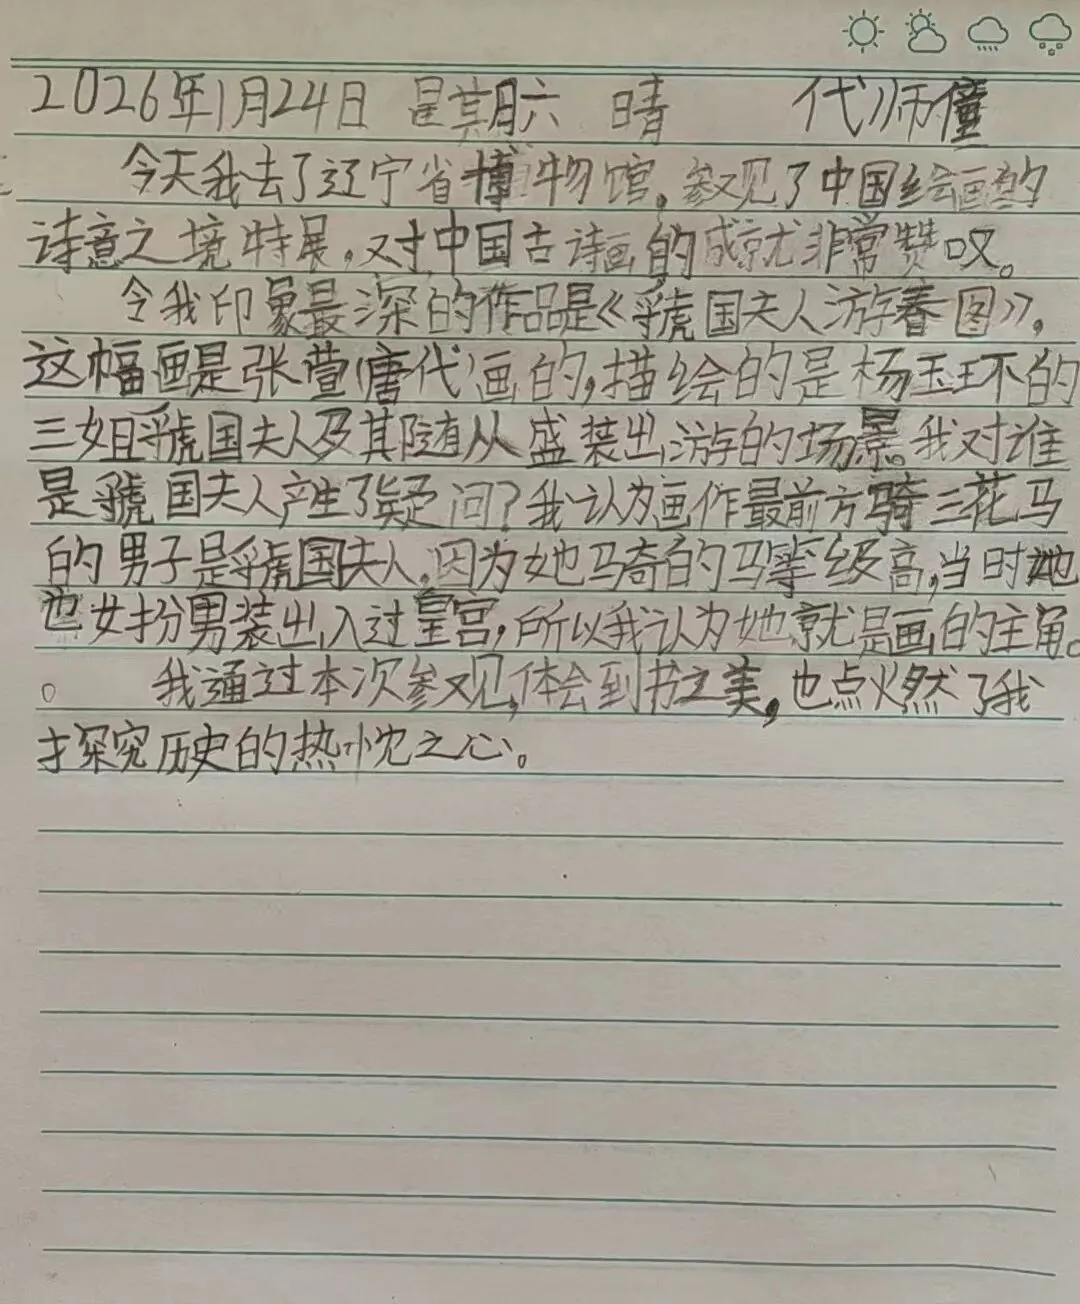 2026年1月24日 星期六 晴 代师僮
今天我去了辽宁省博物馆,参观了中国绘画的
诗意之境特展,对中国古诗画的成就非常赞叹。
令我印象最深的作品是《虢国夫人游春图》,
这幅画是张萱(唐代)画的,描绘的是杨玉环的
三姐虢国夫人及其随从盛装出游的场景。我对谁
是虢国夫人产生了疑问?我认为画作最前方骑三花马
的男子是虢国夫人,因为她骑的马等级高,当时她
也女扮男装出入过皇宫,所以我认为她就是画的主角。
。我通过本次参观,体会到书之美,也点燃了我
探究历史的热忱之心。